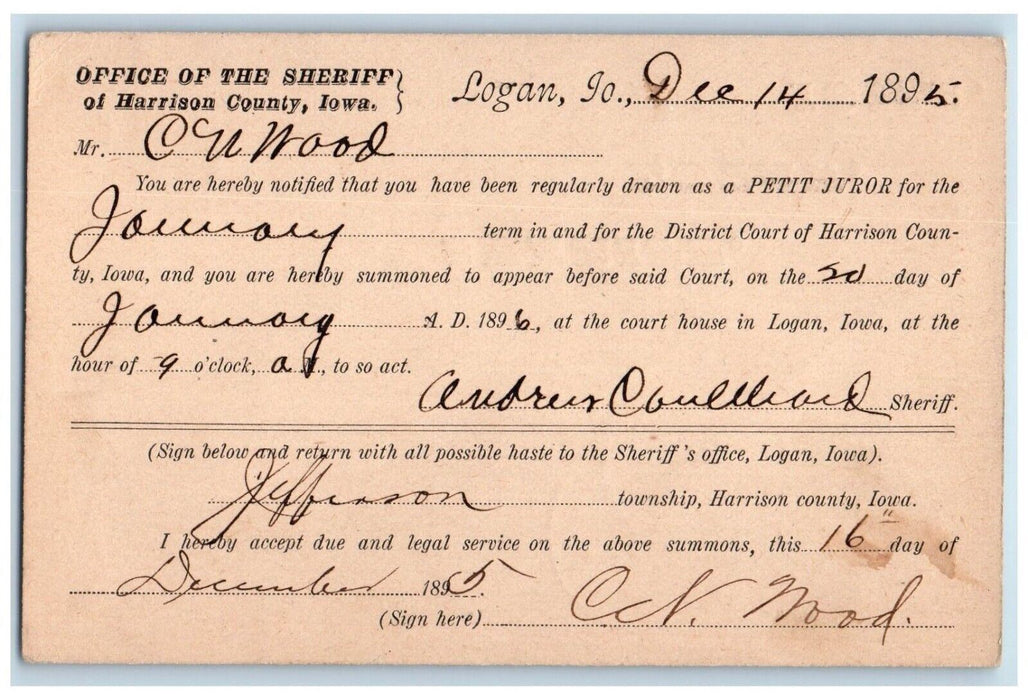 OFFICE OF THE SHERIFF
of Harrison County, Iowa.
Logan, Io., Dec 14 1895.
Mr. C N Wood
You are hereby notified that you have been regularly drawn as a PETIT JUROR for the
January term in and for the District Court of Harrison Coun-
ty, Iowa, and you are hereby summoned to appear before said Court, on the 2d day of
January A. D. 1896, at the court house in Logan, Iowa, at the
hour of 9 o'clock, a M., to so act.
Andrew Coulthard Sheriff.
(Sign below and return with all possible haste to the Sheriff's office, Logan, Iowa).
Jefferson township, Harrison county, Iowa.
I hereby accept due and legal service on the above summons, this 16" day of
December 1895.
(Sign here) C. N. Wood.